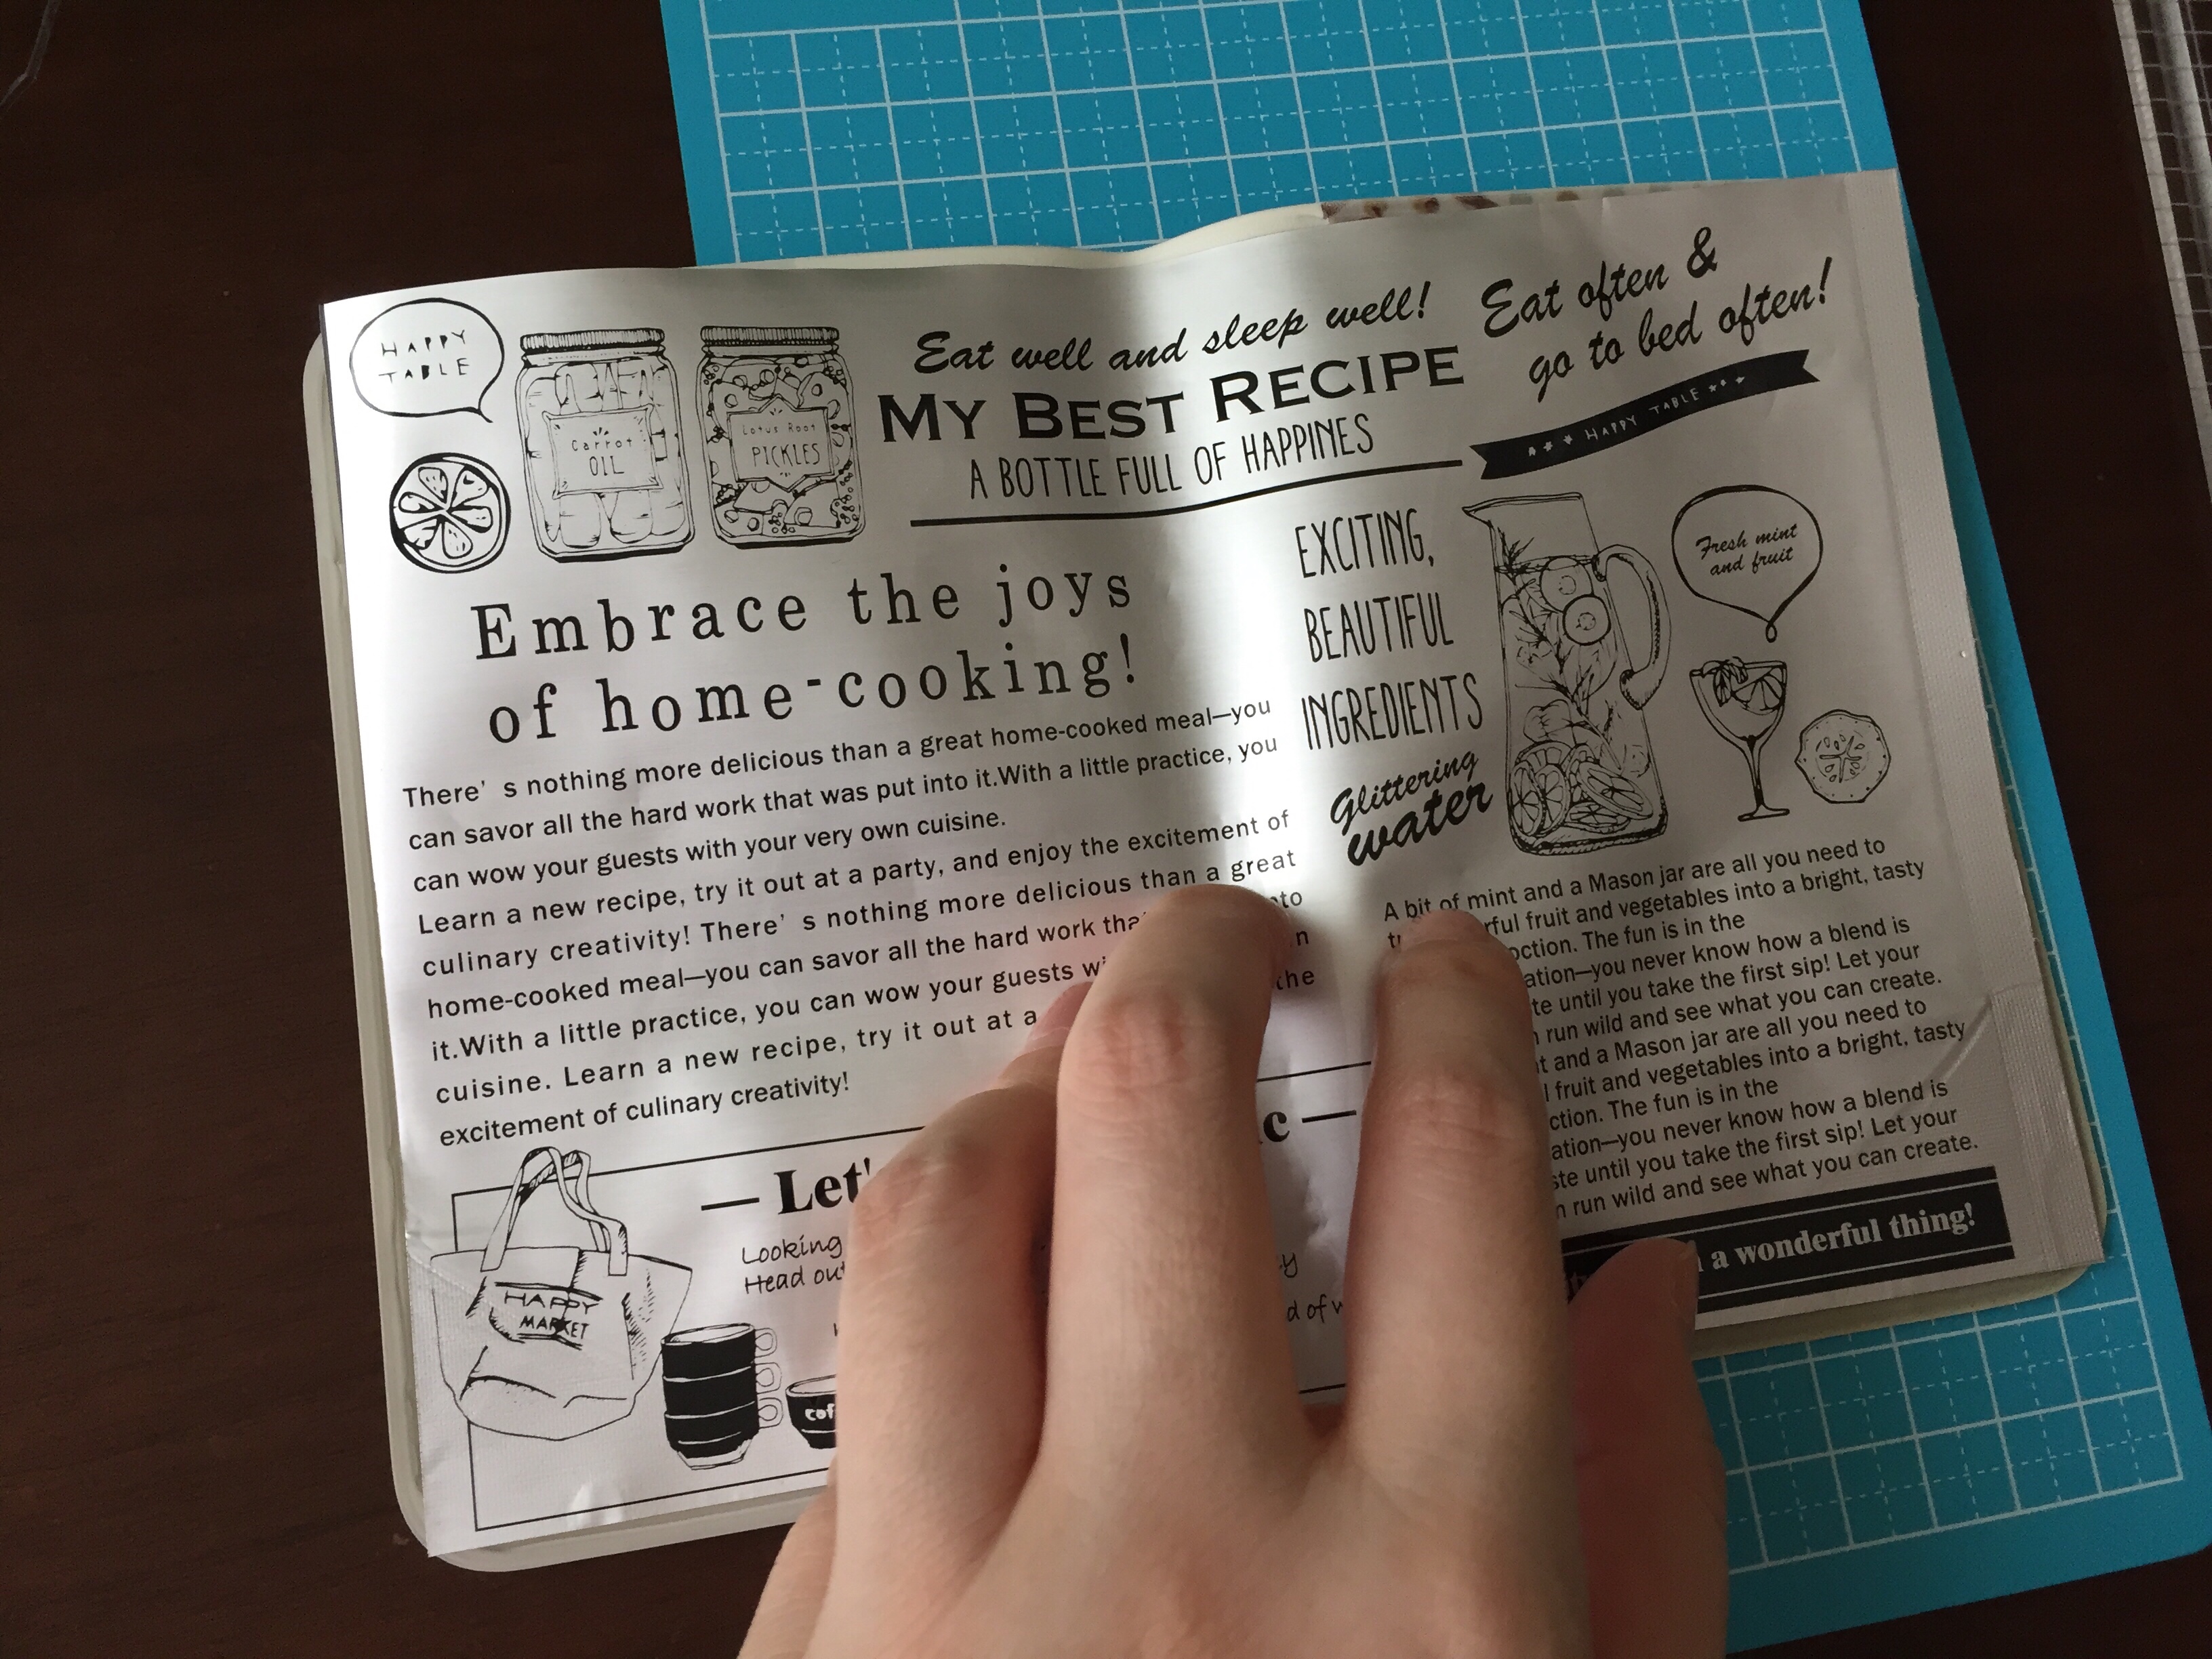 HAPPY
TABLE
Carrot
OIL
Lotus Root
PICKLES
Eat well and sleep well!
MY BEST RECIPE
A BOTTLE FULL OF HAPPINES
Eat often &
go to bed often!
HAPPY TABLE
Embrace the joys
of home-cooking!
There's nothing more delicious than a great home-cooked meal—you
can savor all the hard work that was put into it.With a little practice, you
can wow your guests with your very own cuisine.
Learn a new recipe, try it out at a party, and enjoy the excitement of
culinary creativity! There's nothing more delicious than a great
home-cooked meal—you can savor all the hard work
it.With a little practice, you can wow your guests the
cuisine. Learn a new recipe, try it out at a
excitement of culinary creativity!
EXCITING,
BEAUTIFUL
INGREDIENTS
Glittering
water
Fresh mint
and fruit
A bit of mint and a Mason jar are all you need to
fruit and vegetables into a bright, tasty
The fun is in the
you never know how a blend is
until you take the first sip! Let your
run wild and see what you can create.
and a Mason jar are all you need to
fruit and vegetables into a bright, tasty
The fun is in the
you never know how a blend is
until you take the first sip! Let your
run wild and see what you can create.
a wonderful thing!
Looking
Head
HAPPY
MARKET
of